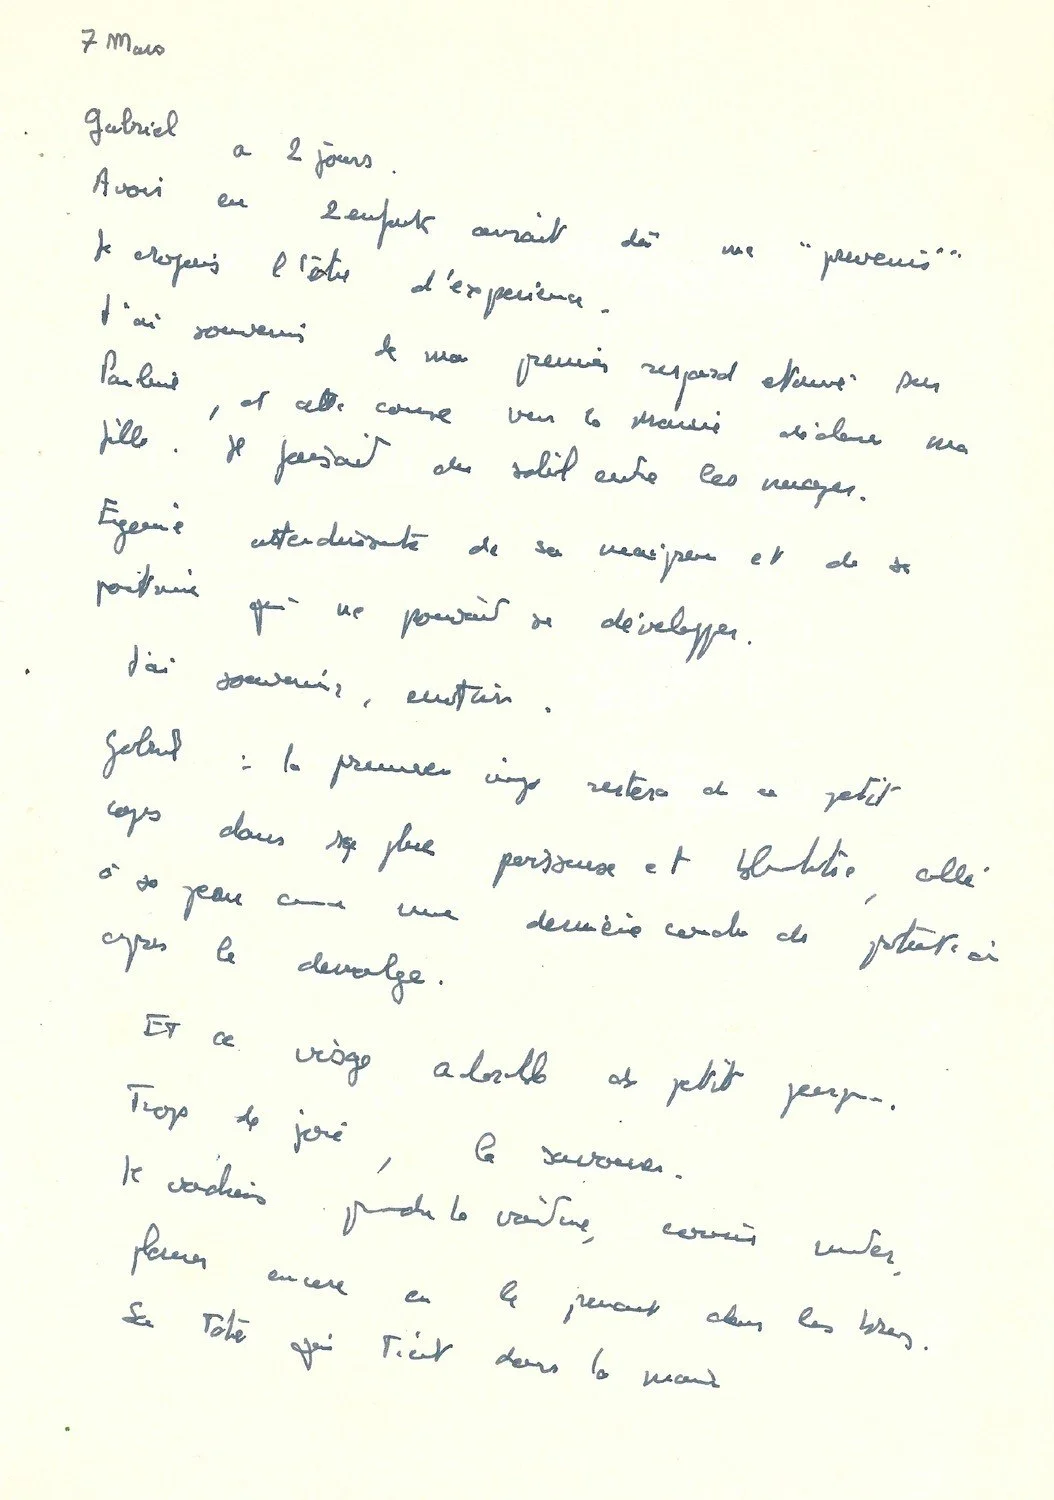 7 Mars
Gabriel a 2 jours.
Avoir eu 2 enfants aurait dû me "prévenir"
Je croyais l'être d'expérience.
J'ai souvenir de mon premier regard étonné sur
Pauline, et cette course vers la mairie déclarer ma
fille. Il faisait du soleil entre les nuages.
Eugénie attendrissante de sa maigreur et de sa
poitrine qui ne pouvait se développer.
J'ai souvenir, émotion.
Gabriel : la première image restera de ce petit
corps dans sa plus et collé
à sa peau comme une dernière couche de
après le
Et ce visage adorable de petit garçon.
Trop de joie, le savourer.
Je voudrais prendre la voiture, courir
pleurer encore en le prenant dans les bras.
Sa tête qui tient dans la main